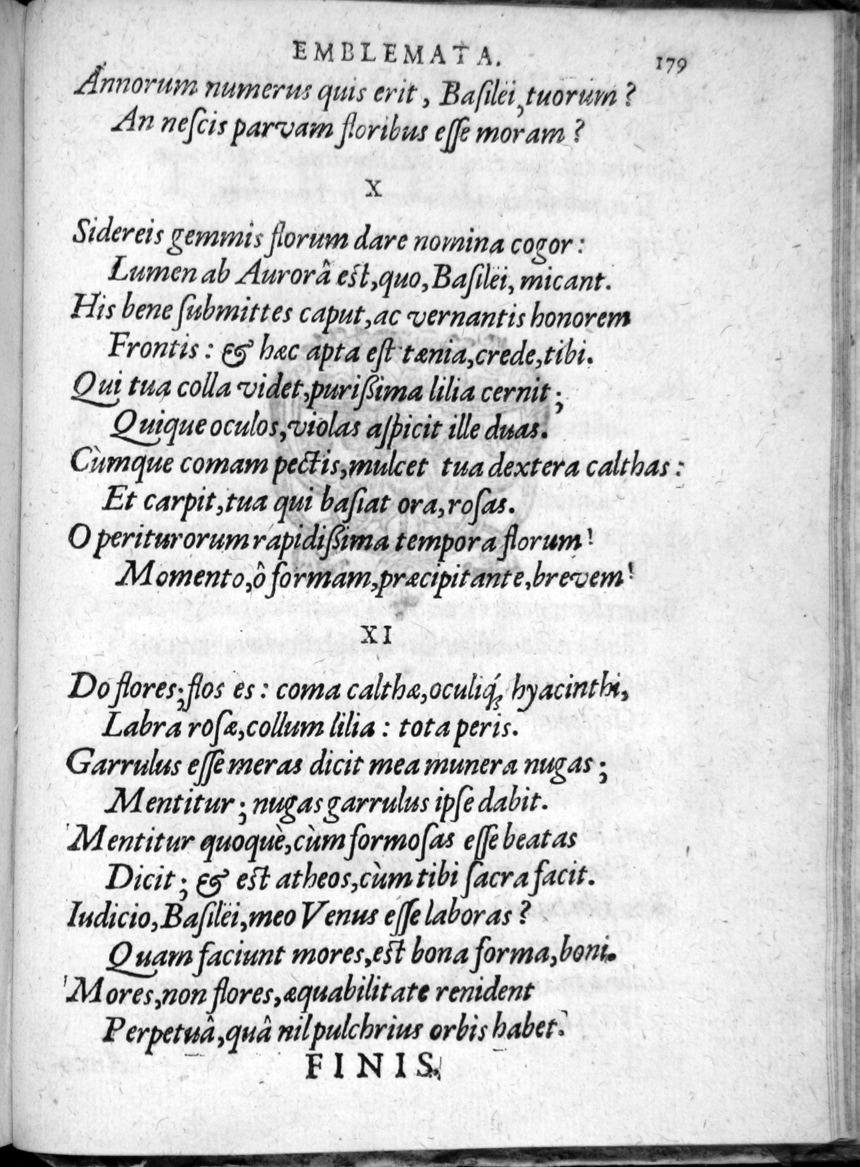 EMBLEMATA. 179
Annorum numerus quis erit, Basilëi, tuorum?
An nescis parvam floribus esse moram?
X
Sidereis gemmis florum dare nomina cogor:
Lumen ab Aurorâ est, quo, Basilëi, micant.
His bene submittes caput, ac vernantis honorem
Frontis: & hæc apta est tænia, crede, tibi.
Qui tua colla videt, purißima lilia cernit;
Quique oculos, violas aspicit ille duas.
Cùmque comam pectis, mulcet tua dextera calthas:
Et carpit, tua qui basiat ora, rosas.
O periturorum rapidißima tempora florum!
Momento, ô formam, præcipitante, brevem!
XI
Do flores; flos es: coma calthæ, oculiq́; hyacinthi,
Labra rosæ, collum lilia: tota peris.
Garrulus esse meras dicit mea munera nugas;
Mentitur; nugas garrulus ipse dabit.
Mentitur quoquè, cùm formosas esse beatas
Dicit; & est atheos, cùm tibi sacra facit.
Iudicio, Basilëi, meo Venus esse laboras?
Quam faciunt mores, est bona forma, boni.
Mores, non flores, æquabilitate renident
Perpetuâ, quâ nil pulchrius orbis habet.
FINIS.